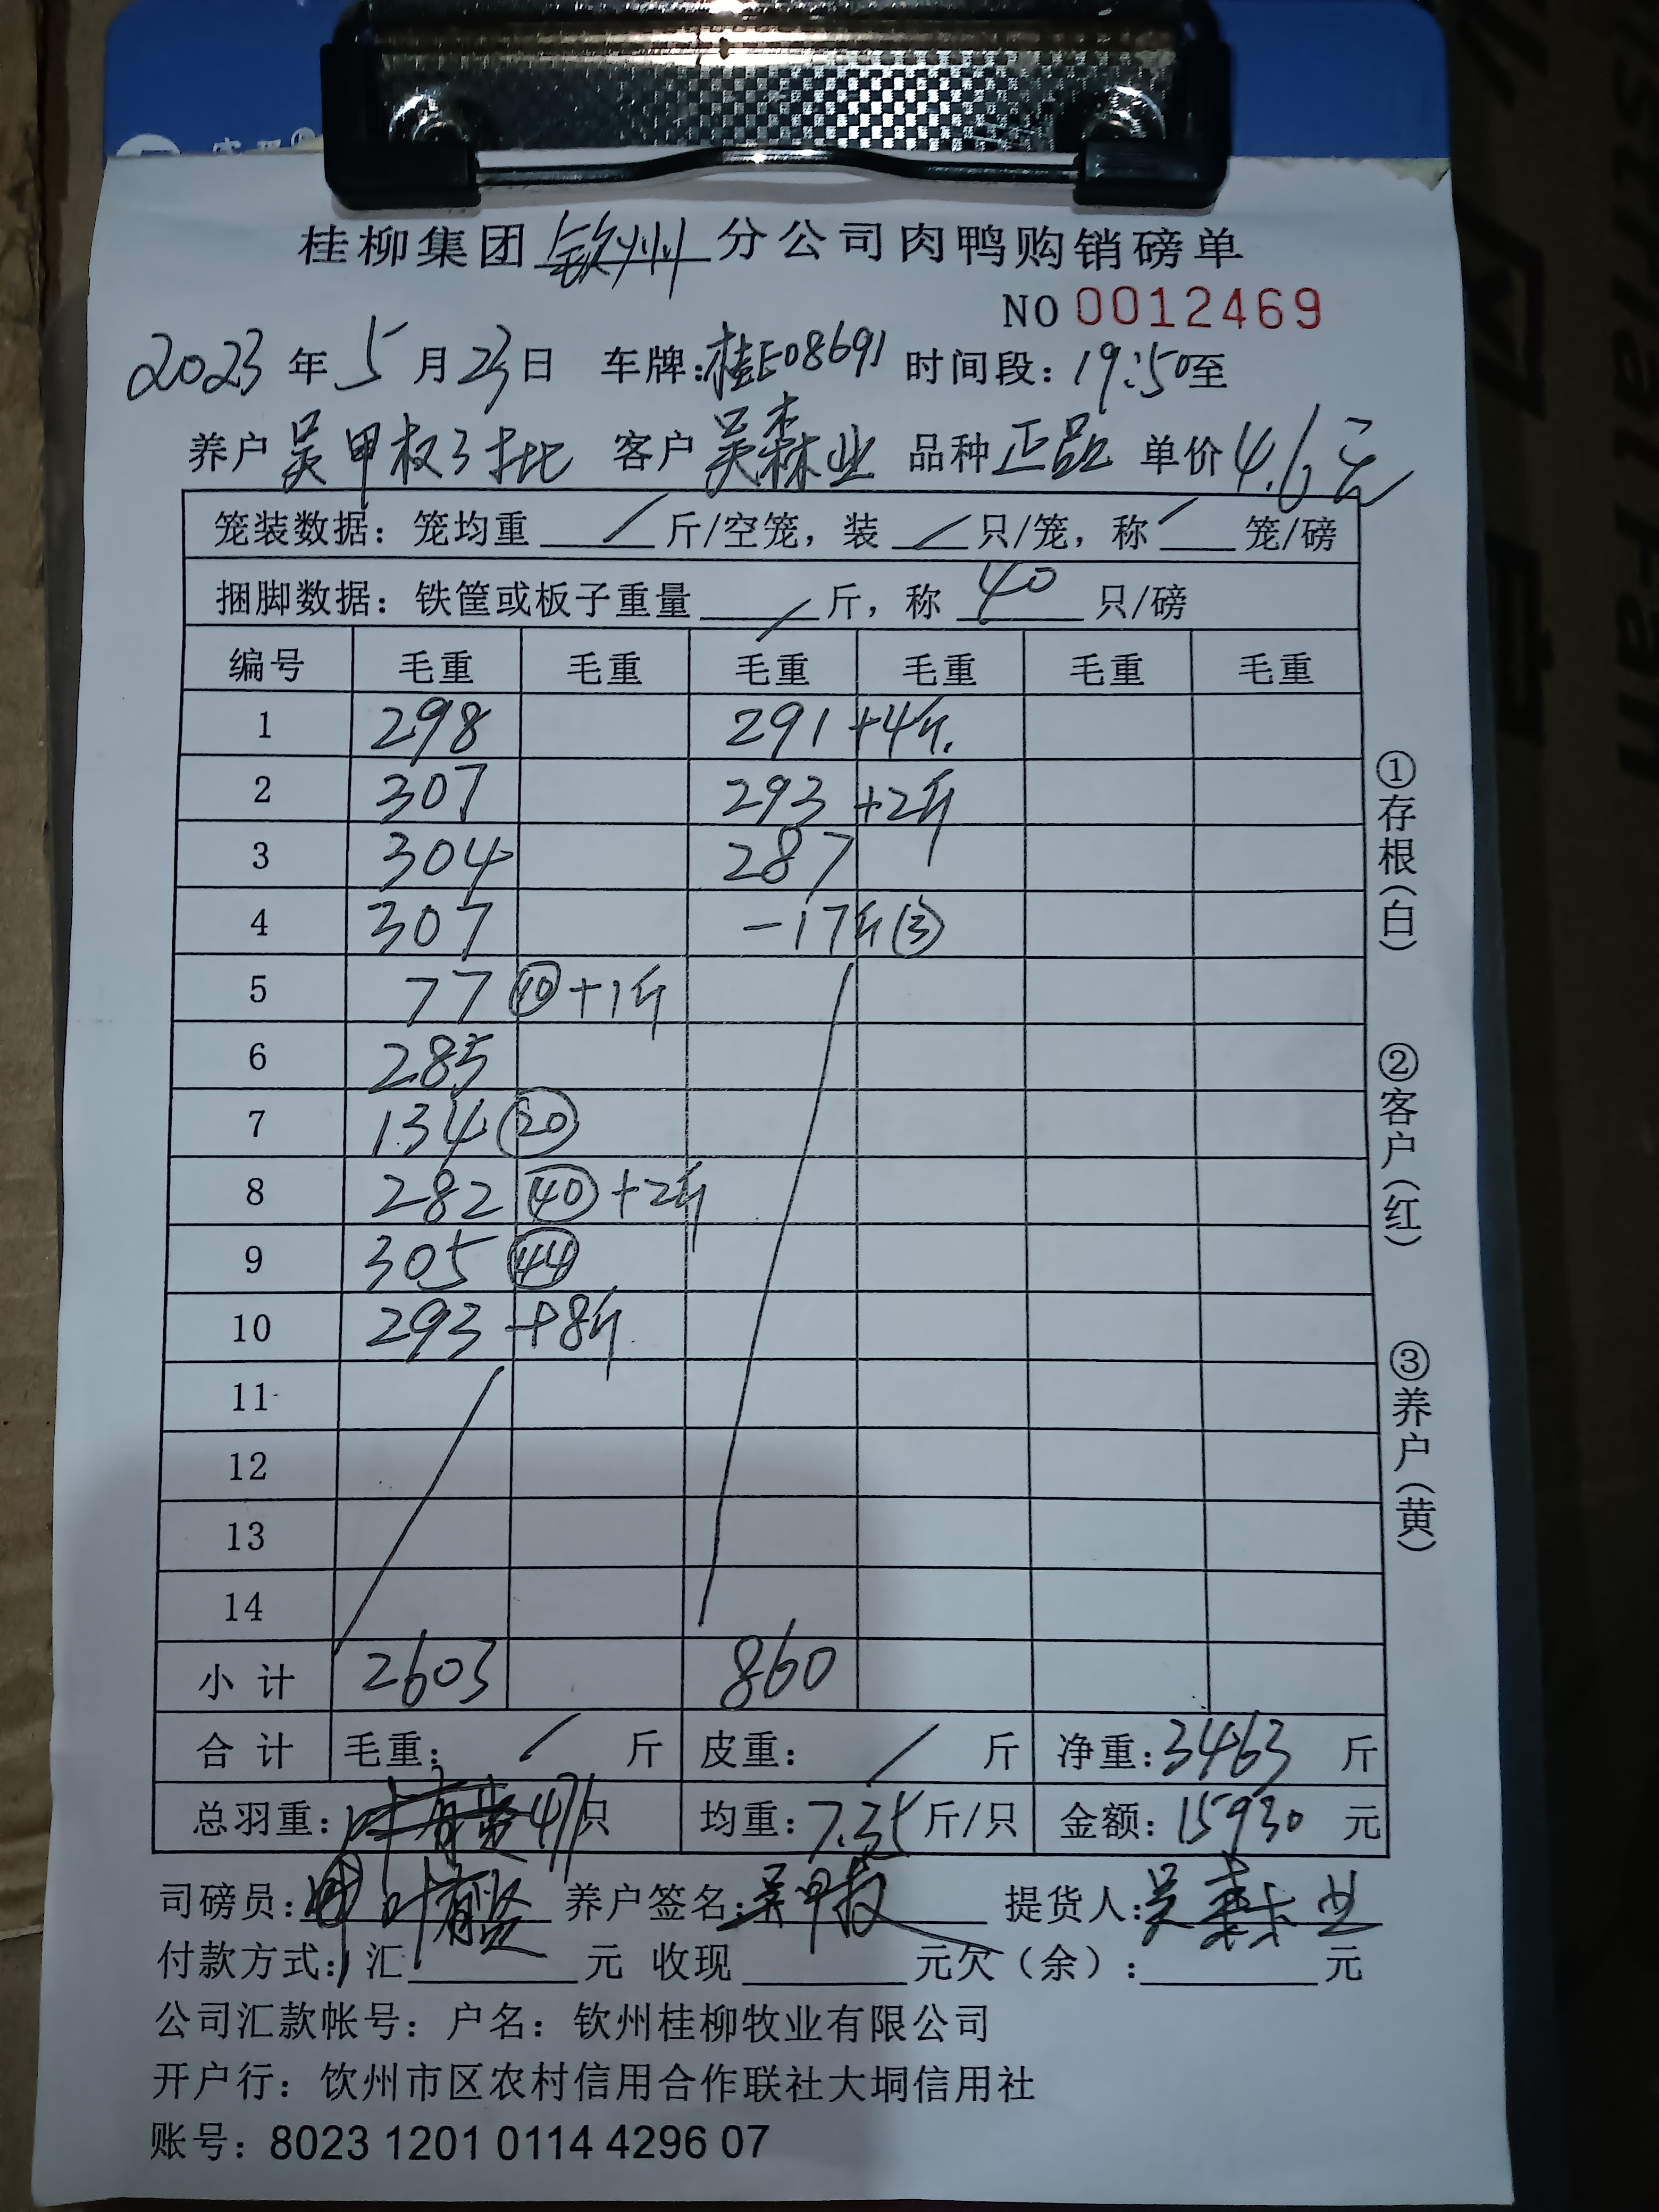 桂柳集团 钦州 分公司肉鸭购销磅单
NO 0012469
2023 年 5 月 23 日 车牌:桂E08691 时间段: 19:50至
养户 吴甲权3批 客户 吴森业 品种 正品 单价 4.6元
笼装数据: 笼均重 / 斤/空笼, 装 / 只/笼, 称 / 笼/磅
捆脚数据: 铁筐或板子重量 / 斤, 称 40 只/磅
编号 毛重 毛重 毛重 毛重 毛重 毛重
1 298 291 +4斤.
2 307 293 +2斤
3 304 287
4 307 -17斤(3)
5 77 ⑩ +1斤
6 285
7 134 ⑳
8 282 ㊵ +2斤
9 305 (44)
10 293 +8斤
11
12
13
14
小计 2603 860
合计 毛重: / 斤 皮重: / 斤 净重: 3463 斤
总羽重: 471只 均重: 7.35 斤/只 金额: 15930 元
司磅员: 养户签名: 吴甲权 提货人: 吴森业
付款方式: 汇 元 收现 元欠(余): 元
公司汇款帐号: 户名: 钦州桂柳牧业有限公司
开户行: 钦州市区农村信用合作联社大垌信用社
账号: 8023 1201 0114 4296 07
①存根(白)
②客户(红)
③养户(黄)